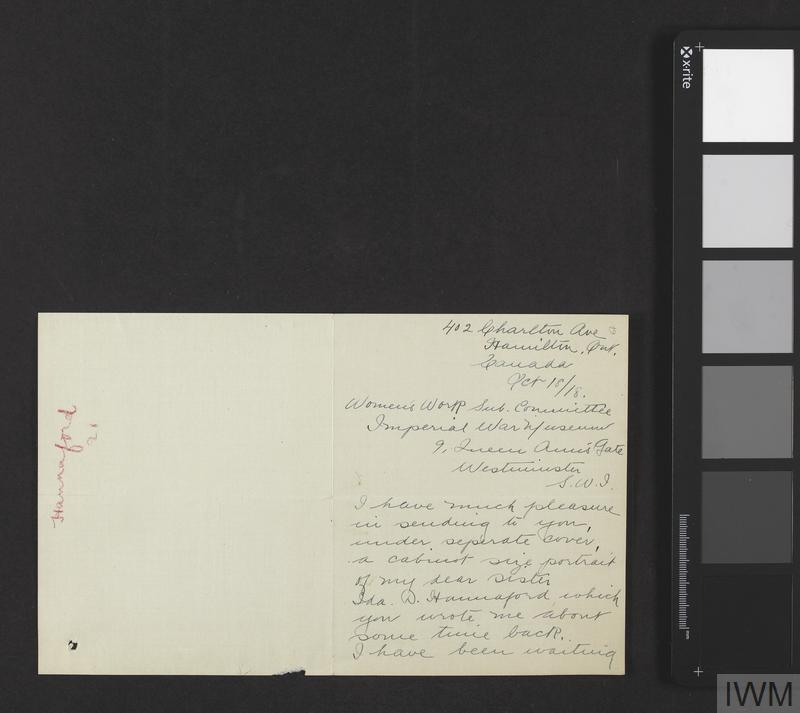 Hannaford
21
402 Charlton Ave
Hamilton, Ont.
Canada
Oct 18/18.
Women's Work Sub. Committee
Imperial War Museum
9, Queen Ann's Gate
Westminster
S.W.I.
I have much pleasure
in sending to you,
under seperate cover,
a cabinet size portrait
of my dear sister
Ida. D. Hannaford, which
you wrote me about
some time back.
I have been waiting
x-rite
mm
IWM